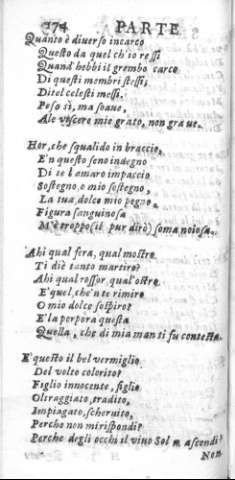 274 PARTE
Quanto è diverso incarco
Questo da quel ch'io ressi
Quand'hebbi il grembo carco
Di questi membri stessi,
Di tel celesti messi.
Peso sì, ma soave,
Ale viscere mie grato, non grave.
Hor, che squalido in braccio,
E'n questo seno indegno
Di te l'amaro impaccio
Sostegno, o mio sostegno,
La tua dolce mio pegno
Figura sanguinosa
M'è troppo (il pur dirò) soma noiosa.
Ahi qual fera, qual mostro
Ti diè tanto martiro?
Ahi qual rossor, qual'ostro
E' quel, che'n te rimiro
O mio dolce sospiro?
E' la porpora questa
Quella, che di mia man ti fu contesta.
E' questo il bel vermiglio
Del volto colorito?
Figlio innocente, figlio
Oltraggiato, tradito,
Impiagato, schernito,
Perche non mi rispondi?
Perche degli occhi il vivo Sol m'ascondi?
Non